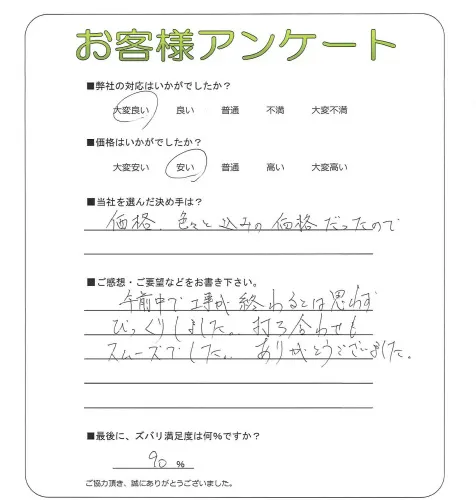 お客様アンケート
■弊社の対応はいかがでしたか？
大変良い 良い 普通 不満 大変不満
■価格はいかがでしたか？
大変安い 安い 普通 高い 大変高い
■当社を選んだ決め手は？
価格、色々と込みの価格だったので
■ご感想・ご要望などをお書き下さい。
午前中で工事が終わるとは思わず
びっくりしました。打ち合わせも
スムーズでした。ありがとうございました。
■最後に、ズバリ満足度は何％ですか？
90 ％
ご協力頂き、誠にありがとうございました。